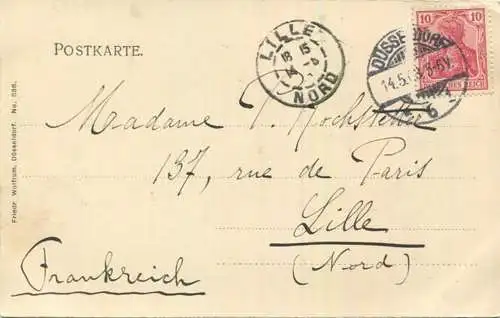 POSTKARTE.
LILLE
18 15
14 -5
NORD
DÜSSELDORF
14.5.
5-6N.
10 10
REICH
Madame T. Hochstetter
137, rue de Paris
Lille
(Nord)
Frankreich
Friedr. Wolfrum, Düsseldorf. No.